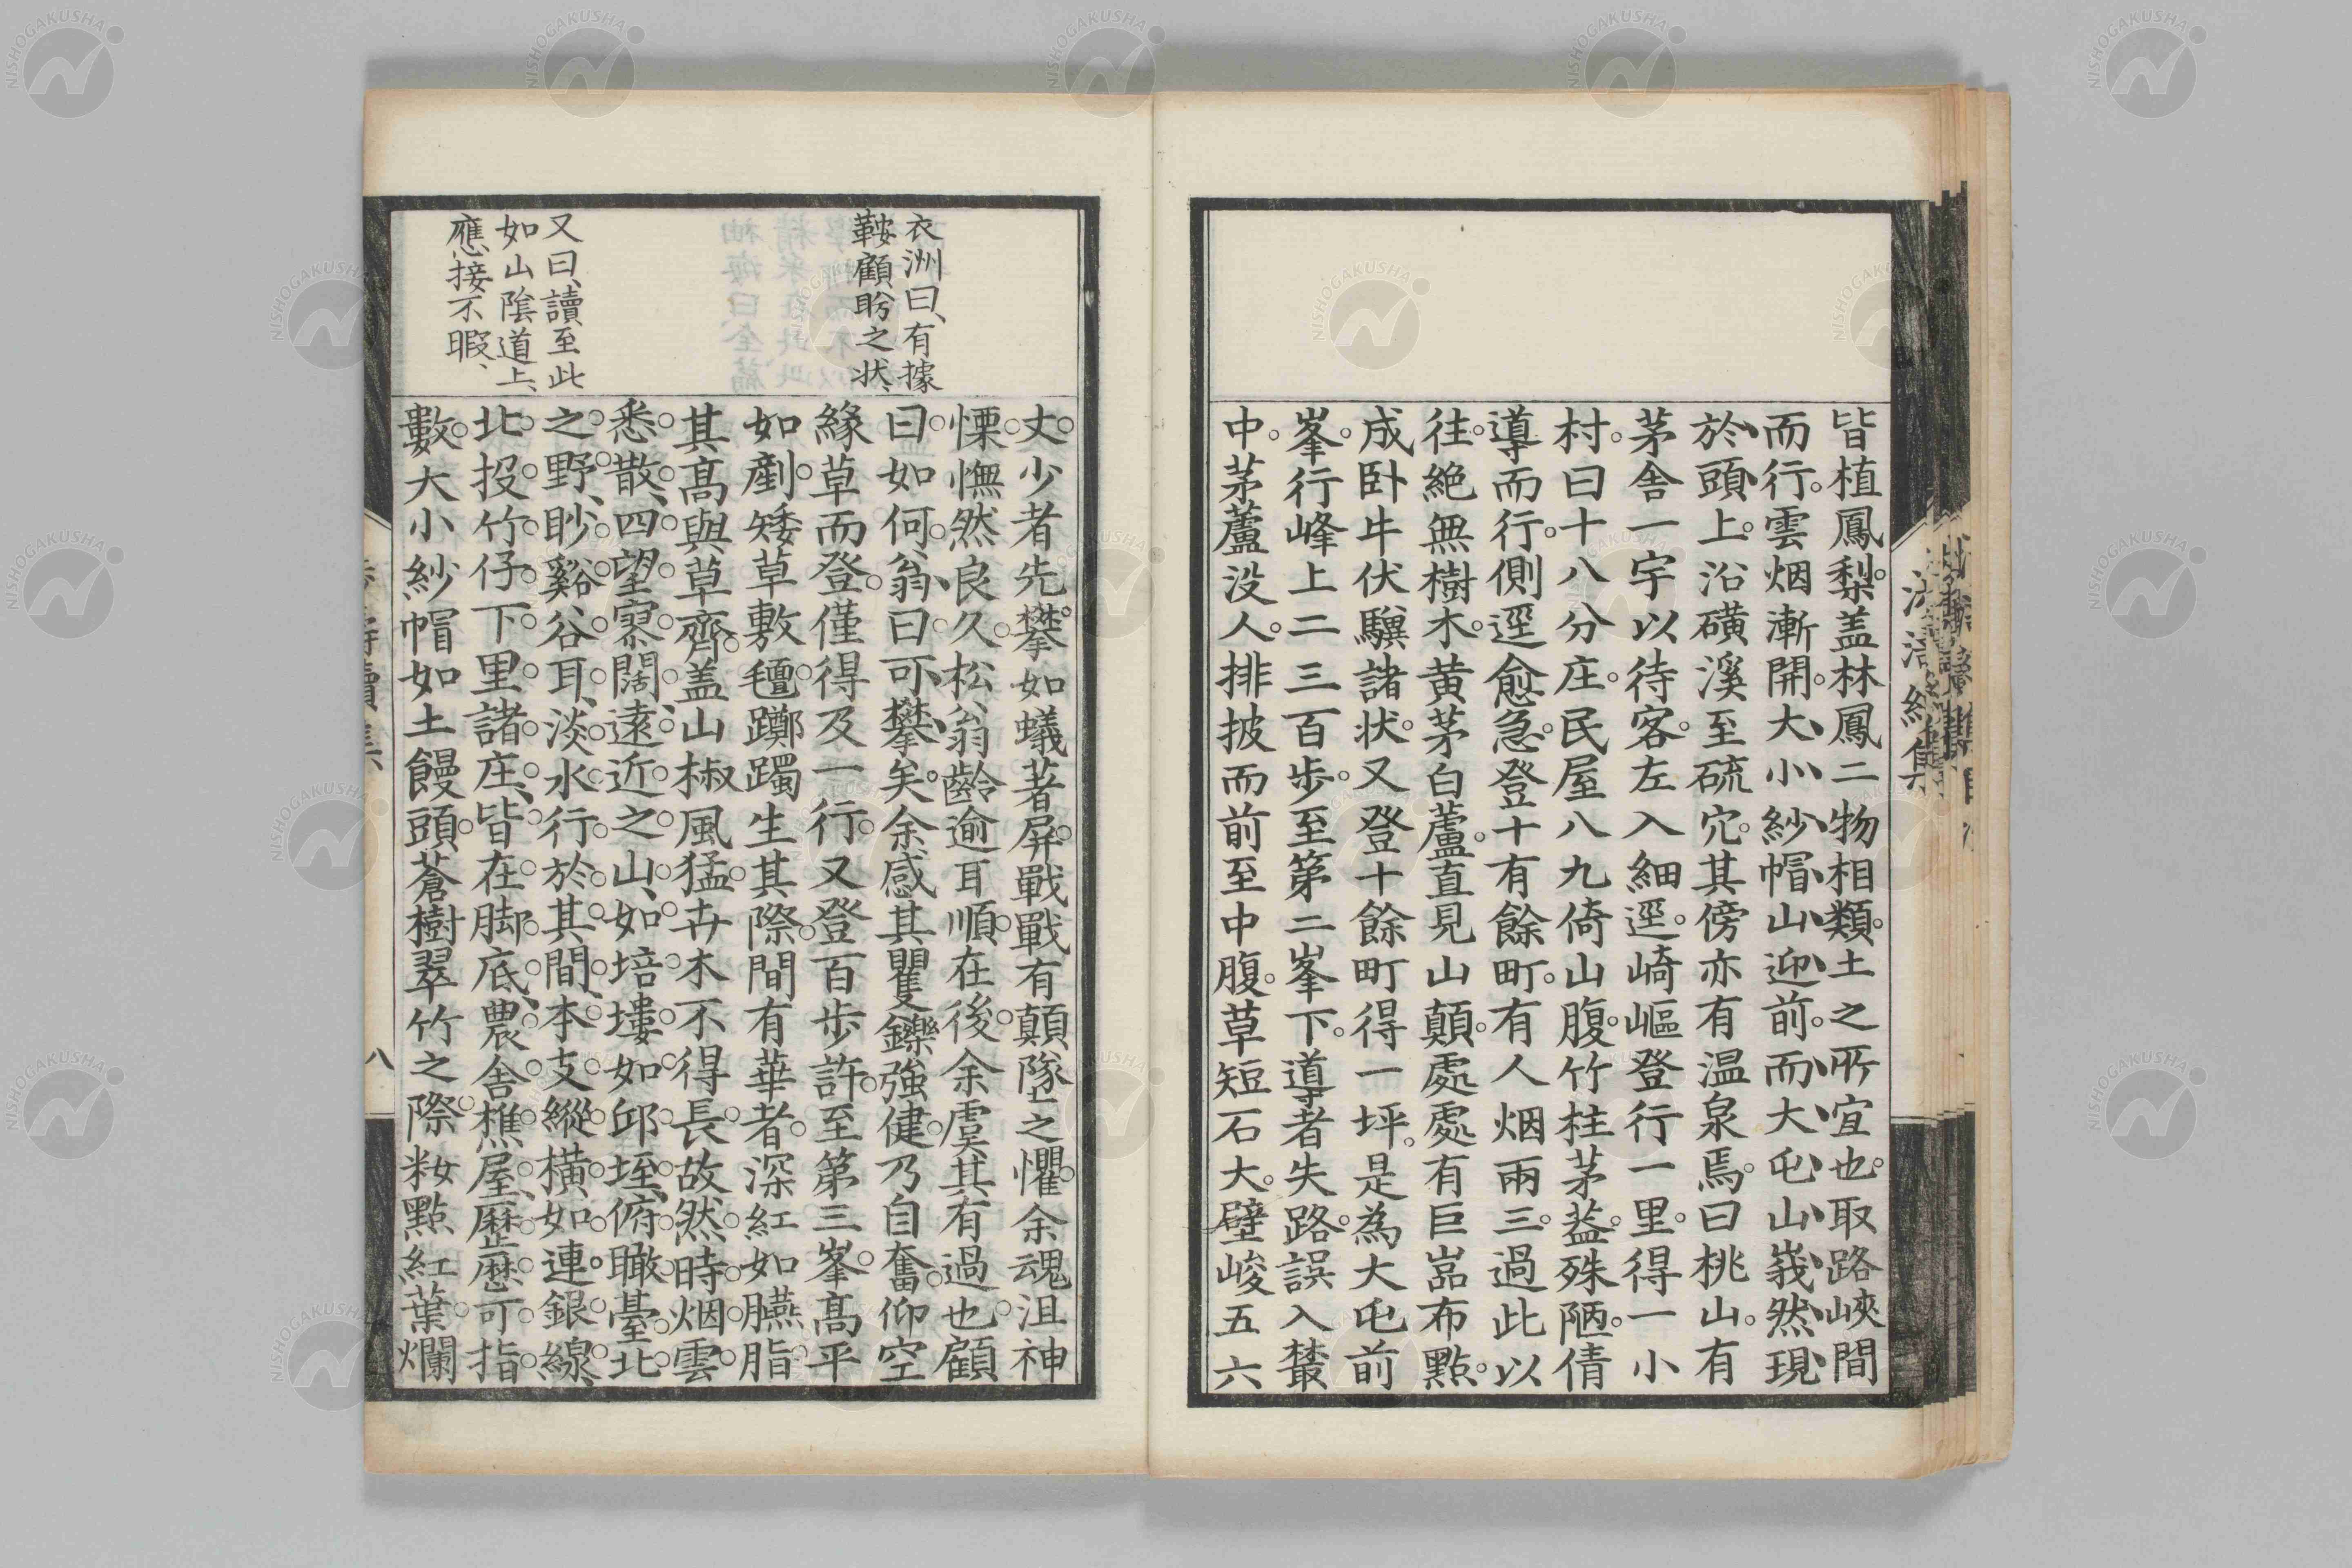 皆植鳳梨。盖林鳳二物相類。土之所宜也。取路峽間
而行。雲烟漸開。大小紗帽山迎前。而大屯山峩然現
於頭上。沿磺溪至硫穴。其傍亦有温泉焉。曰桃山。有
茅舎一宇以待客。左入細逕。崎嶇登行一里。得一小
村。曰十八分庄。民屋八九倚山腹。竹柱茅葢。殊陋。倩
導而行。側逕愈急。登十有餘町。有人烟兩三。過此以
往。絶無樹木。黄茅白蘆。直見山顛。處處有巨嵓布點。
成臥牛伏驥諸状。又登十餘町得一坪。是為大屯前
峯。行峰上二三百歩。至第二峯下。導者失路。誤入叢
中。茅蘆没人。排披而前至中腹。草短石大。壁峻五六
衣洲曰、有據
鞍顧盻之状、
又曰、讀至此
如山陰道上、
應接不暇、
丈。少者先攀。如蟻著屏。戰戰有顛墜之懼。余魂沮神
慄。憮然良久。松翁齡逾耳順。在後。余虞其有過也。顧
曰如何。翁曰可攀矣。余感其矍鑠強健。乃自奮。仰空
緣草而登。僅得及一行。又登百歩許。至第三峯。髙平
如剷。矮草敷氊。躑躅生其際。間有華者。深紅如臙脂。
其髙與草齊。盖山椒風猛。卉木不得長。故然。時烟雲
悉散、四望寥闊、遠近之山、如培塿如邱垤、俯瞰臺北
之野、眇谿谷耳、淡水行於其間、本支縱横、如連銀線、
北投竹仔下里諸庄、皆在脚底、農舎樵屋、歷歷可指
數。大小紗帽如土饅頭。蒼樹翠竹之際。粧點紅葉。爛
八